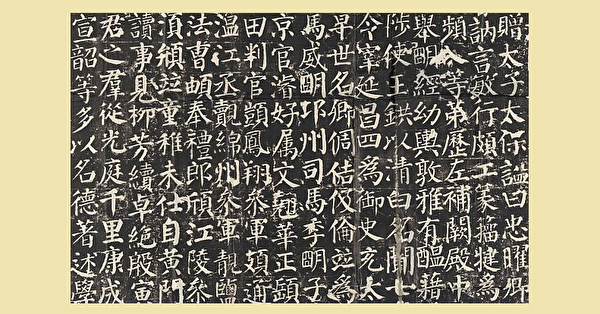 贈太子太保謚曰忠曜卿
訥言敏行頗工篆籀犍為
頻入等第歷左補闕殿中
舉明經幼輿敦雅有醞藉
陟使王鉷以清白名聞七
令宰延昌四為御史充太
早世名卿倜佶伋倫竝為
馬威明邛州司馬季明子
京官濬好屬文翹華正頤
田判官顗鳳翔參軍頍通
溫江丞覿綿州參軍靚鹽
法曹頔奉禮郎頎江陵參
湏頠竝童稚未仕自黃門
讀事見柳芳續卓絕殷寅
君之羣從光庭千里康成
宣韶等多以名德著述學